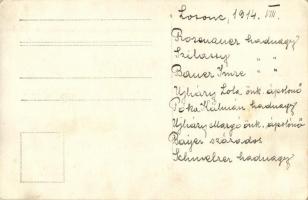 Losonc, 1914. VIII.
Rosenauer hadnagy
Szilassy " "
Bauer Imre " "
Ujházy Lola önk. ápolónő
Pótka Kálmán hadnagy
Ujházy Margó önk. ápolónő
Bayer százados
Schmelzer hadnagy